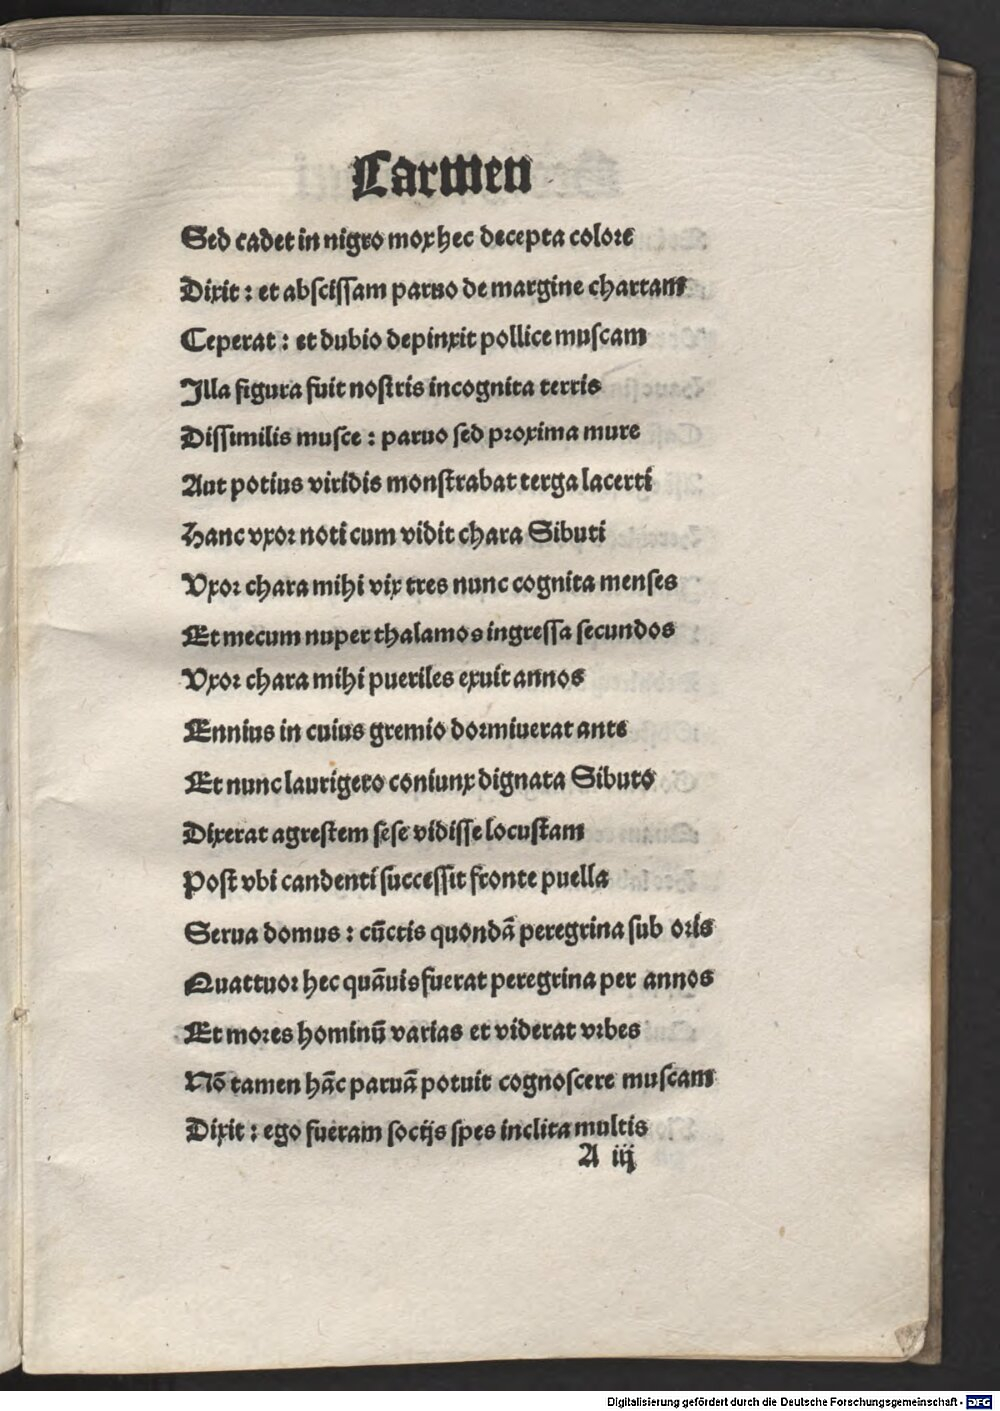 Carmen
Sed cadet in nigro mox hec decepta colore
Dixit : et abscissam paruo de margine chartam
Ceperat : et dubio depinxit pollice muscam
Illa figura fuit nostris incognita terris
Dissimilis musce : paruo sed proxima mure
Aut potius viridis monstrabat terga lacerti
Hanc vxor noti cum vidit chara Sibuti
Vxor chara mihi vix tres nunc cognita menses
Et mecum nuper thalamos ingressa secundos
Vxor chara mihi pueriles exuit annos
Ennius in cuius gremio dormiuerat ante
Et nunc laurigero coniunx dignata Sibuto
Dixerat agrestem sese vidisse locustam
Post vbi candenti successit fronte puella
Serua domus : cūctis quondā peregrina sub oris
Quattuor hec quāuis fuerat peregrina per annos
Et mores hominū varias et viderat vrbes
Nō tamen hāc paruā potuit cognoscere muscam
Dixit : ego fueram socijs spes inclita multis
A iij
Digitalisierung gefördert durch die Deutsche Forschungsgemeinschaft - DFG